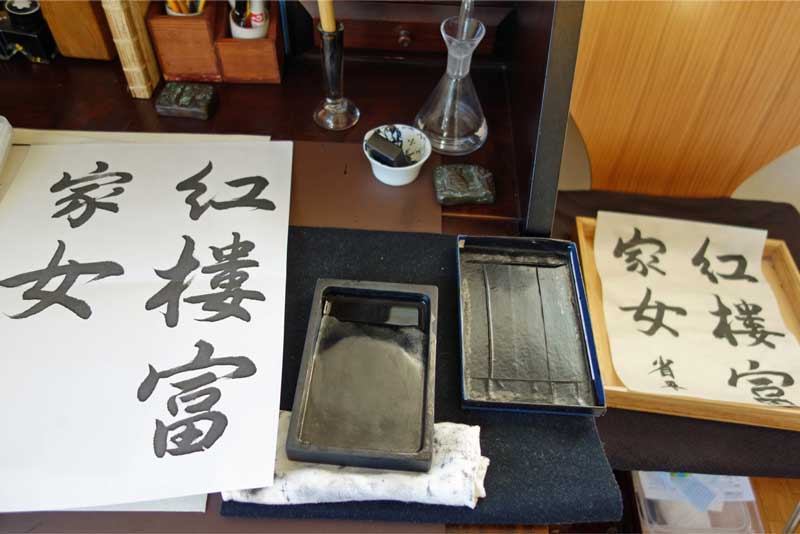 紅樓富
家女
紅樓富
家女
省